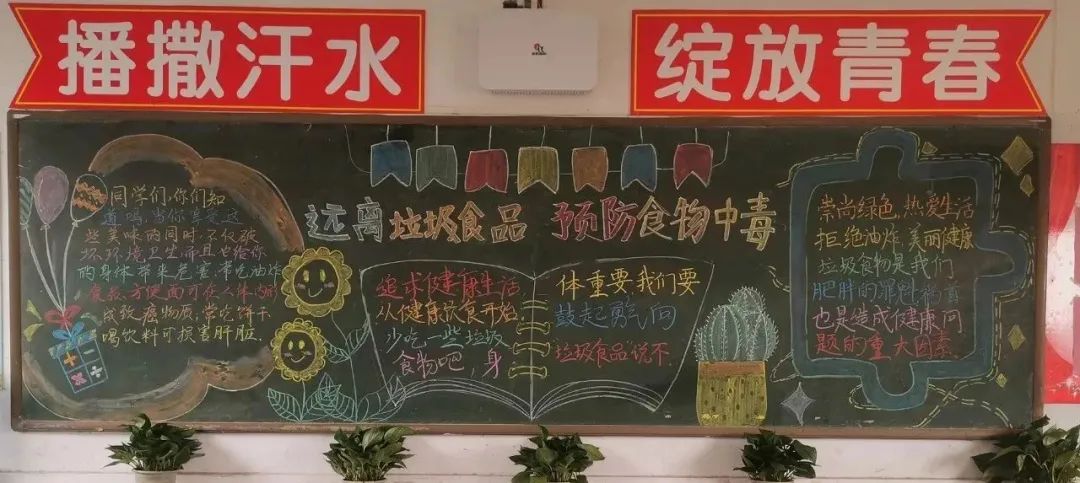 播撒汗水
绽放青春
远离垃圾食品 预防食物中毒
同学们,你们知
道吗,当你享受这
些美味的同时,不仅破
坏环境卫生,而且也给你
的身体带来危害,常吃油炸
食品、方便面可在人体内形
成致癌物质,常吃饼干
喝饮料可损害肝脏.
追求健康生活
从健康饮食开始.
少吃一些垃圾
食物吧,身
体重要我们要
鼓起勇气向
垃圾食品说不.
崇尚绿色,热爱生活
拒绝油炸,美丽健康
垃圾食物是我们
肥胖的罪魁祸首
也是造成健康问
题的重大因素.